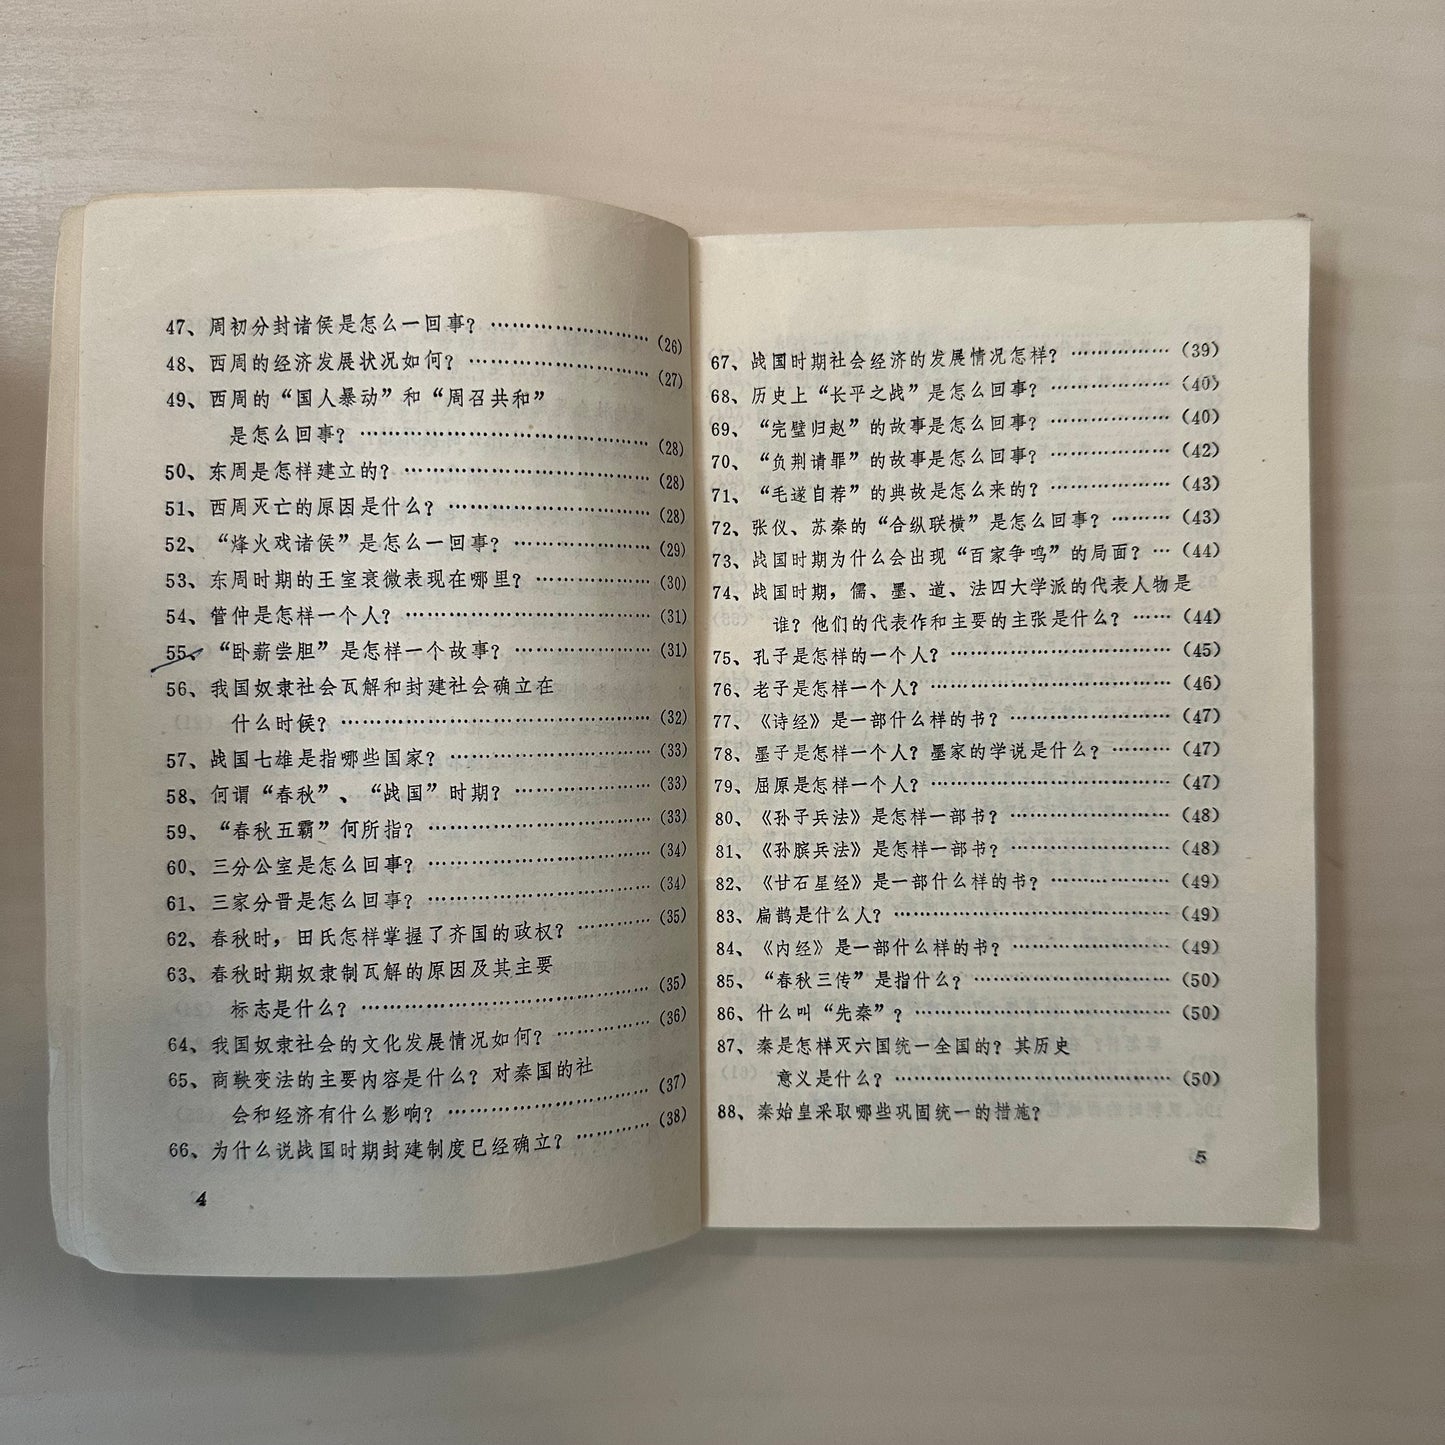 47、周初分封诸侯是怎么一回事？……………………(26)
48、西周的经济发展状况如何？………………………(27)
49、西周的“国人暴动”和“周召共和”
是怎么回事？……………………………………(28)
50、东周是怎样建立的？………………………………(28)
51、西周灭亡的原因是什么？…………………………(28)
52、“烽火戏诸侯”是怎么一回事？…………………(29)
53、东周时期的王室衰微表现在哪里？………………(30)
54、管仲是怎样一个人？………………………………(31)
55、“卧薪尝胆”是怎样一个故事？…………………(31)
56、我国奴隶社会瓦解和封建社会确立在
什么时候？………………………………………(32)
57、战国七雄是指哪些国家？…………………………(33)
58、何谓“春秋”、“战国”时期？…………………(33)
59、“春秋五霸”何所指？……………………………(33)
60、三分公室是怎么回事？……………………………(34)
61、三家分晋是怎么回事？……………………………(34)
62、春秋时，田氏怎样掌握了齐国的政权？…………(35)
63、春秋时期奴隶制瓦解的原因及其主要
标志是什么？……………………………………(35)
64、我国奴隶社会的文化发展情况如何？……………(36)
65、商鞅变法的主要内容是什么？对秦国的社
会和经济有什么影响？…………………………(37)
66、为什么说战国时期封建制度已经确立？…………(38)
4
67、战国时期社会经济的发展情况怎样？……………(39)
68、历史上“长平之战”是怎么回事？………………(40)
69、“完璧归赵”的故事是怎么回事？………………(40)
70、“负荆请罪”的故事是怎么回事？………………(42)
71、“毛遂自荐”的典故是怎么来的？………………(43)
72、张仪、苏秦的“合纵联横”是怎么回事？………(43)
73、战国时期为什么会出现“百家争鸣”的局面？…(44)
74、战国时期，儒、墨、道、法四大学派的代表人物是
谁？他们的代表作和主要的主张是什么？………(44)
75、孔子是怎样的一个人？……………………………(45)
76、老子是怎样一个人？………………………………(46)
77、《诗经》是一部什么样的书？……………………(47)
78、墨子是怎样一个人？墨家的学说是什么？………(47)
79、屈原是怎样一个人？………………………………(47)
80、《孙子兵法》是怎样一部书？……………………(48)
81、《孙膑兵法》是怎样一部书？……………………(48)
82、《甘石星经》是一部什么样的书？………………(49)
83、扁鹊是什么人？……………………………………(49)
84、《内经》是一部什么样的书？……………………(49)
85、“春秋三传”是指什么？…………………………(50)
86、什么叫“先秦”？…………………………………(50)
87、秦是怎样灭六国统一全国的？其历史
意义是什么？……………………………………(50)
88、秦始皇采取哪些巩固统一的措施？
5